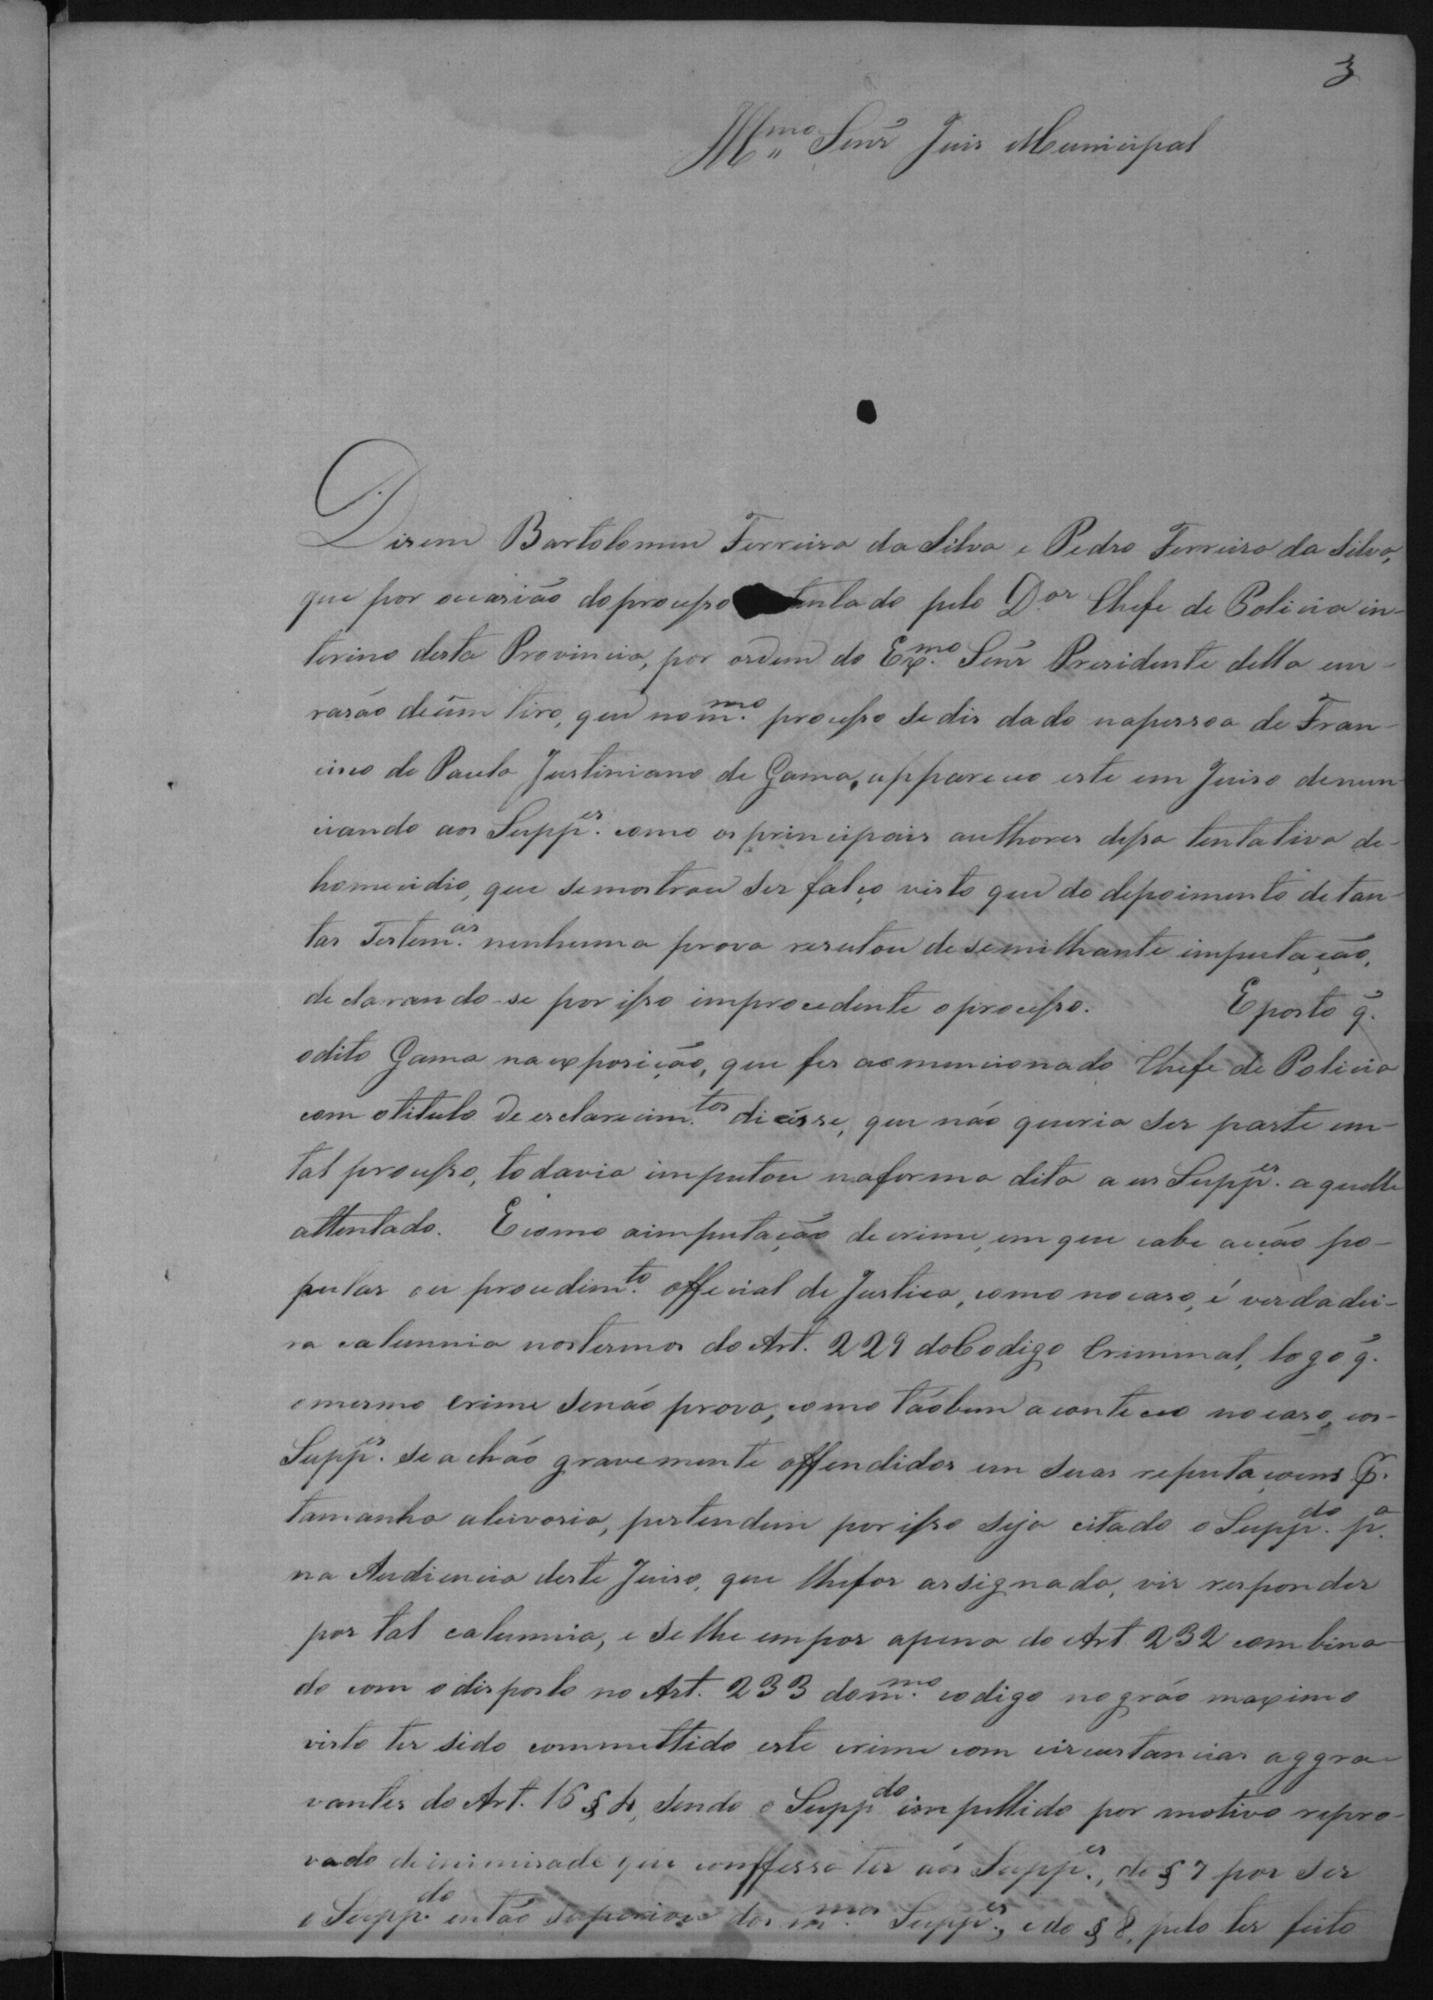 3
Ill.mo Senr Juis Municipal
Disem Bartolomeu Ferreira da Silva e Pedro Ferreira da Silva,
que por occasião do processo tentado pelo D.or Chefe de Policia in-
terino desta Provincia, por ordem do Ex.mo Senr Presidente della em
rasão de um tiro, que no m.mo processo se dis dado na pessoa de Fran-
cisco de Paula Justiniano de Gama, appareceo este em Juiso denun-
ciando aos Supp.es como os principais authores dessa tentativa de
homecidio, que se mostrou ser falço visto que do depoimento de tan-
tas Testem.as nenhuma prova resutou de semilhante imputação,
declarando-se por isso improcedente o processo. E posto q.
o dito Gama na exposição, que fes ao mencionado Chefe de Policia
com o titulo de esclarecim.tos dicésse, que não queria ser parte em
tal processo, todavia imputou na forma dita a us Supp.es aquelle
attentado. E como a imputação de crime, em que cabe acção po-
pular ou procedim.to official de Justica, como no caso, é verdadei-
ra calumnia nos termos do Art. 229 do Codigo Criminal, logo q.
o mesmo crime se não prova, como tãobem aconteceo no caso, e os
Supp.es se achão gravemente offendidos em suas reputaçoens P.
tamanha aleivosia, pertendem por isso seja citado o Supp.do p.a
na Audiencia deste Juiso, que lhe for assignada, vir responder
por tal calumnia, e se lhe empor a pena do Art. 232 combina-
do com o disposto no Art. 233 do m.mo codigo no gráo maximo
visto ter sido commettido este crime com circustancias aggra-
vantes do Art. 16 § 4, sendo o Supp.do impellido por motivo repro-
vado de inimisade que conffessa ter aós Supp.es, do § 7 por ser
o Supp.do então superior dos m.mos Supp.es, e do § 8, pelo ter feito